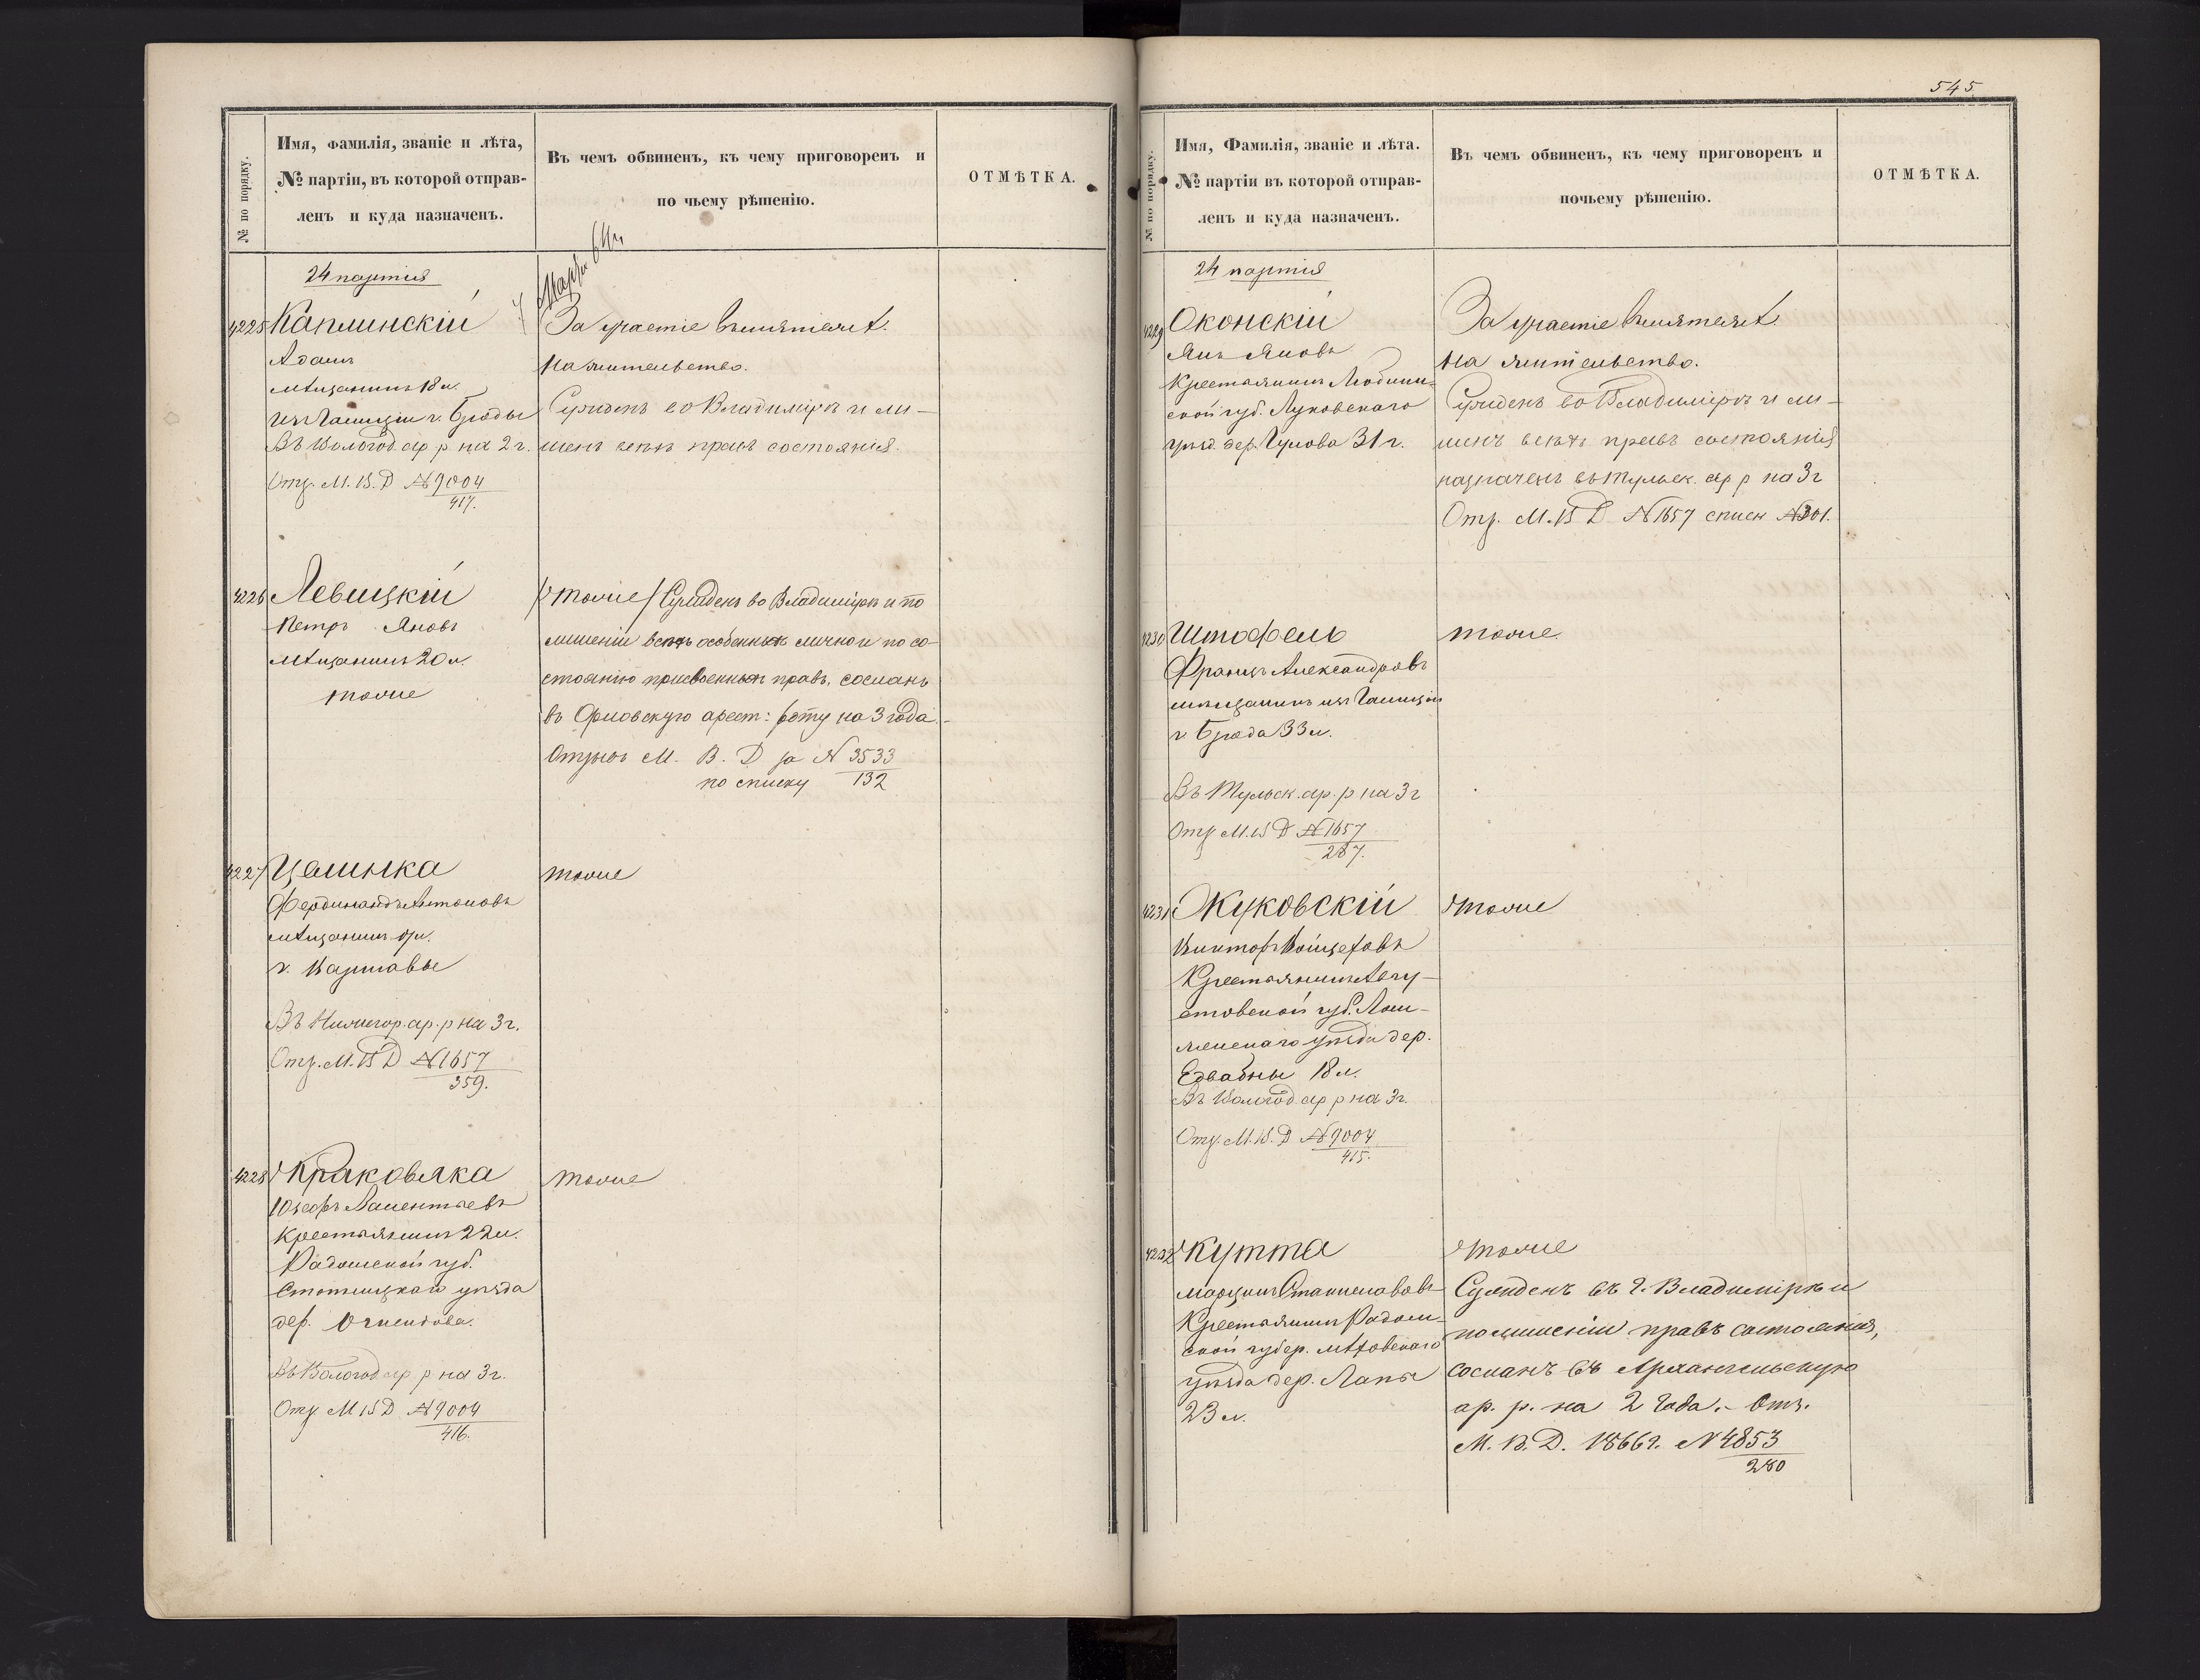 545
№ по порядку.
Имя, фамилія, званіе и лѣта,
№ партіи, въ которой отправ-
ленъ и куда назначенъ.
Въ чемъ обвиненъ, къ чему приговоренъ и
по чьему рѣшенію.
ОТМѢТКА.
24 партія
4225 Каплинскій
Адамъ
мѣщанинъ 18 л.
изъ Галиціи г. Броды
Въ Вологод. ар р на 2 г.
Отз. М. В. Д №9004
417.
За участіе въ мятежѣ.
На жительство.
Сужденъ во Владимірѣ и ли-
шенъ всѣхъ правъ состоянія.
4226 Левицкій
Петръ Яновъ
мѣщанинъ 20 л.
тоже
тоже / Сужденъ во Владимірѣ и по
лишеніи всѣхъ особенныхъ лично и по со-
стоянію присвоенныхъ правъ, сосланъ
въ Орловскую арест: роту на 3 года.
Отзывъ М. В. Д за N 3533
по списку 132
4227 Цалинка
Фердинандъ Антоновъ
мѣщанинъ
г. Варшавы
Въ Нижегор. ар. р на 3 г.
Отз. М. В Д №1657
359.
тоже
4228 Краковяка
Юзефъ Валентьевъ
Крестьянинъ 22 л.
Радомской губ.
Стопницкаго уѣзда
дер.
Въ Вологод ар р на 3 г.
Отз. М В Д №9004
416.
тоже
№ по порядку.
Имя, Фамилія, званіе и лѣта.
№ партіи въ которой отправ-
ленъ и куда назначенъ.
Въ чемъ обвиненъ, къ чему приговоренъ и
почьему рѣшенію.
ОТМѢТКА.
24 партія
4229 Оконскій
Янъ Яновъ
Крестьянинъ Люблин-
ской губ. Луковскаго
уѣзд. дер. Гулова 31 г.
За участіе въ мятежѣ.
На жительство.
Сужденъ во Владимірѣ и ли-
шенъ всѣхъ правъ состоянія
назначенъ въ Тульск. ар р на 3 г
Отз. М. В Д №1657 списк №301.
4230 Штофель
Францъ Александровъ
мѣщанинъ изъ Галиціи
г. Брода 33 л.
Въ Тульск. ар. р на 3 г
Отз М. В Д №1657
287.
тоже.
4231 Жуковскій
Викторъ Войцеховъ
Крестьянинъ Авгу-
стовской губ. Лом-
женскаго уѣзда дер.
Едвабны 18 л.
Въ Вологод. ар р на 3 г.
Отз. М. В. Д №9004
415.
тоже
4232 Кутта
Марцинъ Станиславовъ
Крестьянинъ Радом-
ской губер. Мѣховскаго
уѣзда дер. Лапы
23 л.
тоже
Сужденъ въ г. Владимірѣ и
по лишеніи правъ состоянія,
сосланъ въ Архангельскую
ар. р. на 2 года. - Отз.
М. В. Д. 1866 г. N 4853
280